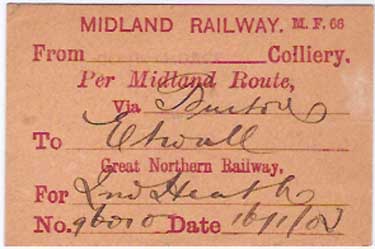 MIDLAND RAILWAY. M. F. 66
From Colliery.
Per Midland Route,
Via Burton
To Etwall
Great Northern Railway,
For Heath
No. Date 16/1/02